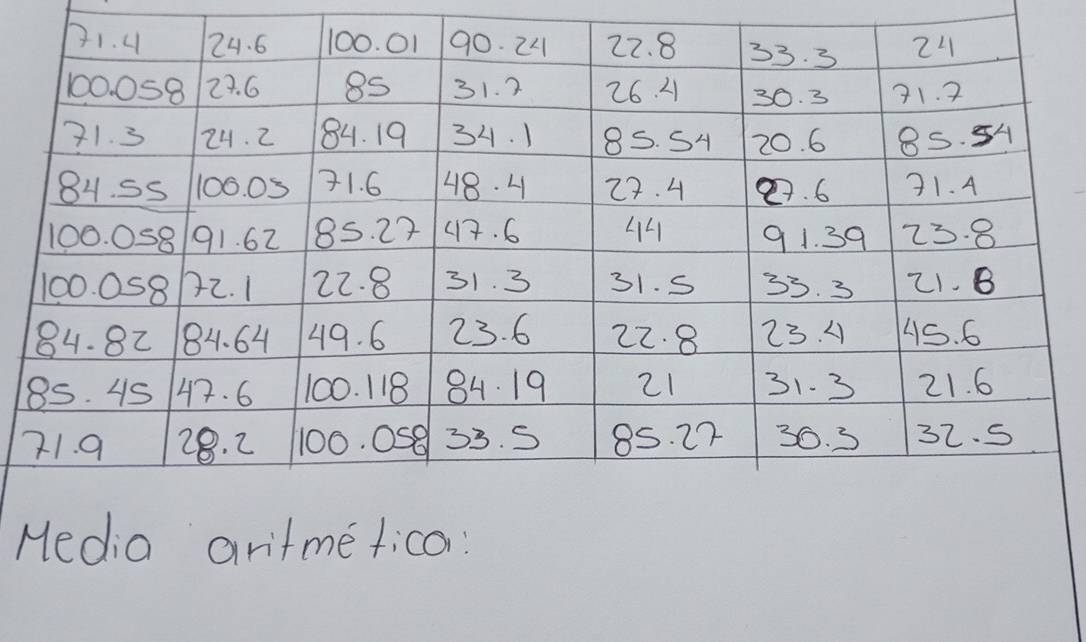 71.4 24.6 100.01 90.24 22.8 33.3 24
100.058 27.6 85 31.7 26.4 30.3 71.7
71.3 24.2 84.19 34.1 85.54 20.6 85.54
84.55 100.03 71.6 48.4 27.4 27.6 71.4
100.058 91.62 85.27 47.6 44 91.39 23.8
100.058 72.1 22.8 31.3 31.5 33.3 21.8
84.82 84.64 49.6 23.6 22.8 23.4 45.6
85.45 47.6 100.118 84.19 21 31.3 21.6
71.9 28.2 100.058 33.5 85.27 30.3 32.5
Media aritmética: